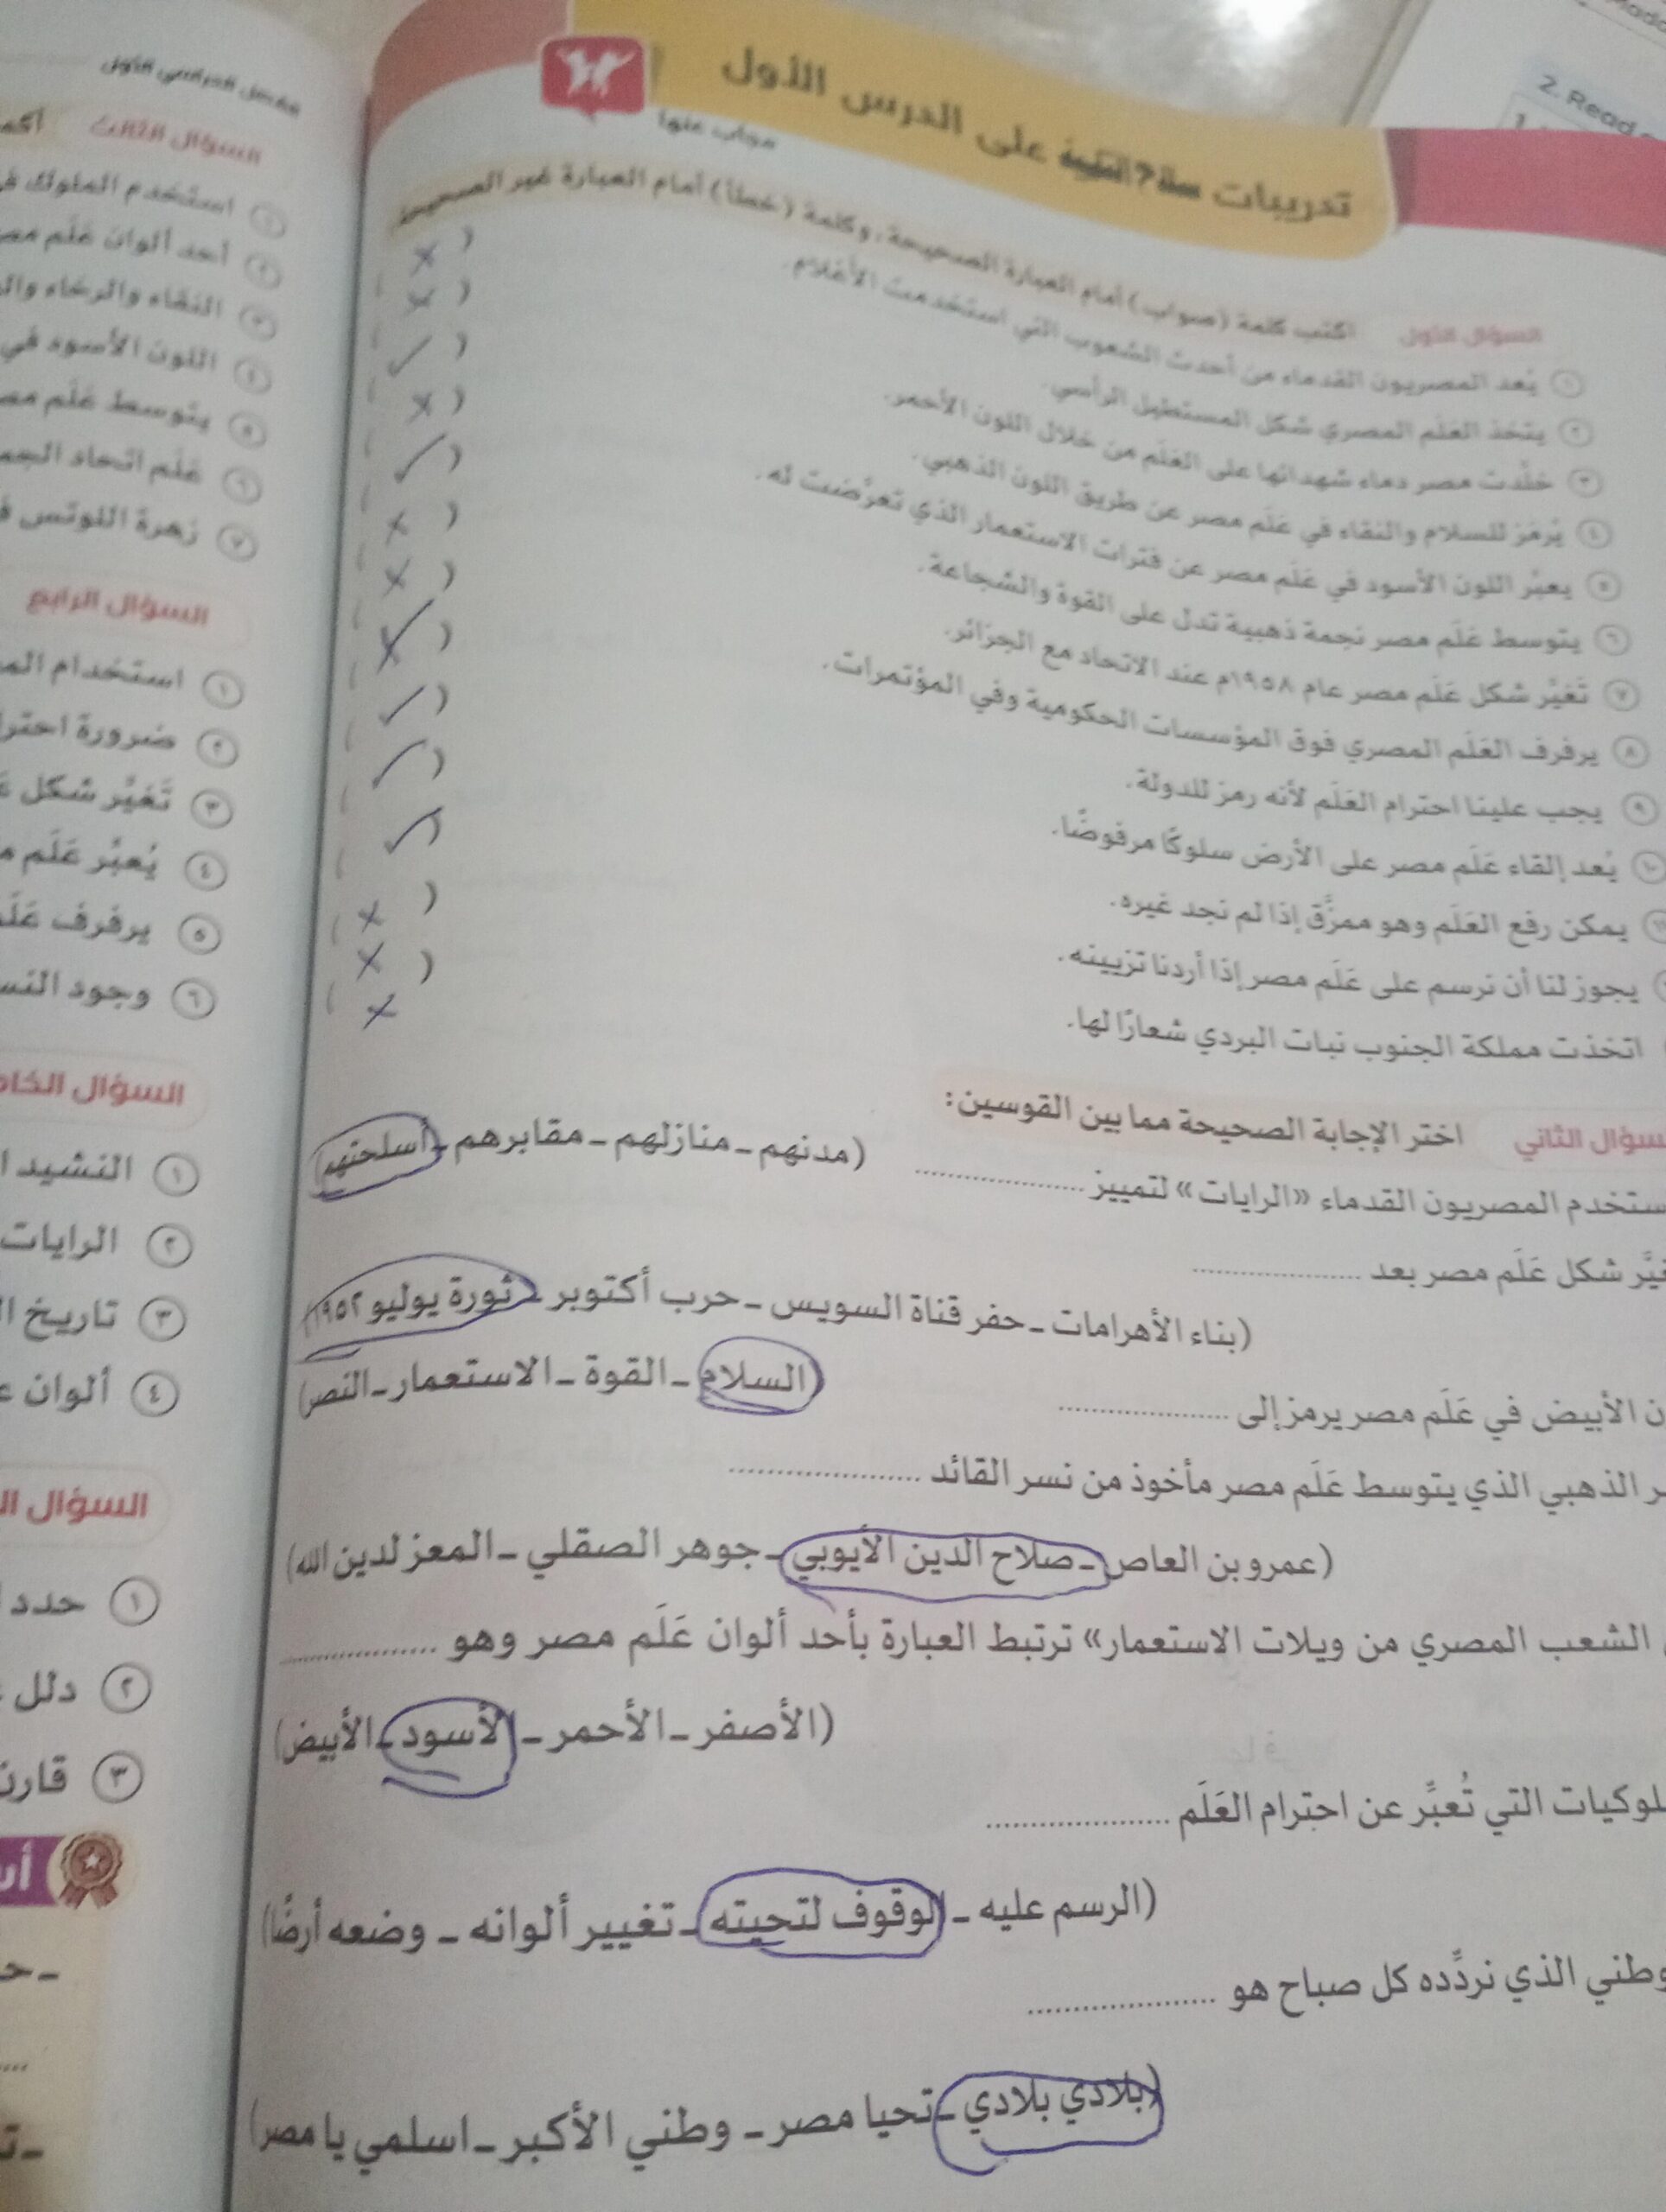 تدريبات سلاح التلميذ على الدرس الأول
مجاب عنها
السؤال الأول اكتب كلمة (صواب) أمام العبارة الصحيحة، وكلمة (خطأ) أمام العبارة غير الصحيحة
١ يُعد المصريون القدماء من أحدث الشعوب التي استخدمت الأعلام. ( × )
٢ يتخذ العَلَم المصري شكل المستطيل الرأسي. ( × )
٣ خلَّدت مصر دماء شهدائها على العَلَم من خلال اللون الأحمر. ( ✓ )
٤ يُرمَز للسلام والنقاء في عَلَم مصر عن طريق اللون الذهبي. ( × )
٥ يعبِّر اللون الأسود في عَلَم مصر عن فترات الاستعمار الذي تعرَّضت له. ( ✓ )
٦ يتوسط عَلَم مصر نجمة ذهبية تدل على القوة والشجاعة. ( × )
٧ تَغيَّر شكل عَلَم مصر عام ١٩٥٨م عند الاتحاد مع الجزائر. ( × )
٨ يرفرف العَلَم المصري فوق المؤسسات الحكومية وفي المؤتمرات. ( ✓ )
٩ يجب علينا احترام العَلَم لأنه رمز للدولة. ( ✓ )
١٠ يُعد إلقاء عَلَم مصر على الأرض سلوكًا مرفوضًا. ( ✓ )
١١ يمكن رفع العَلَم وهو ممزَّق إذا لم نجد غيره. ( ✓ )
يجوز لنا أن نرسم على عَلَم مصر إذا أردنا تزيينه. ( × )
اتخذت مملكة الجنوب نبات البردي شعارًا لها. ( × )
×
سؤال الثاني اختر الإجابة الصحيحة مما بين القوسين:
ستخدم المصريون القدماء «الرايات» لتمييز ..................
(مدنهم ـ منازلهم ـ مقابرهم ـ أسلحتهم)
غيَّر شكل عَلَم مصر بعد ..................
(بناء الأهرامات ـ حفر قناة السويس ـ حرب أكتوبر ـ ثورة يوليو ١٩٥٢)
ن الأبيض في عَلَم مصر يرمز إلى ..................
(السلام ـ القوة ـ الاستعمار ـ النصر)
ر الذهبي الذي يتوسط عَلَم مصر مأخوذ من نسر القائد ..................
(عمرو بن العاص ـ صلاح الدين الأيوبي ـ جوهر الصقلي ـ المعز لدين الله)
الشعب المصري من ويلات الاستعمار» ترتبط العبارة بأحد ألوان عَلَم مصر وهو ..................
(الأصفر ـ الأحمر ـ الأسود ـ الأبيض)
لوكيات التي تُعبِّر عن احترام العَلَم ..................
(الرسم عليه ـ الوقوف لتحيته ـ تغيير ألوانه ـ وضعه أرضًا)
وطني الذي نردِّده كل صباح هو ..................
(بلادي بلادي ـ تحيا مصر ـ وطني الأكبر ـ اسلمي يا مصر)
الفصل الدراسي الأول
السؤال الثالث أكم
١ استخدم الملوك ف
٢ أحد ألوان عَلَم مص
٣ النقاء والرخاء وال
٤ اللون الأسود في
٥ يتوسط عَلَم مص
٦ عَلَم اتحاد الجم
٧ زهرة اللوتس ف
السؤال الرابع
١ استخدام الم
٢ ضرورة احترا
٣ تَغيُّر شكل عَ
٤ يُعبِّر عَلَم م
٥ يرفرف عَلَ
٦ وجود النس
السؤال الخام
١ النشيد ا
٢ الرايات
٣ تاريخ ا
٤ ألوان ع
السؤال ال
١ حدد
٢ دلل
٣ قارن
أس
2. Read
1